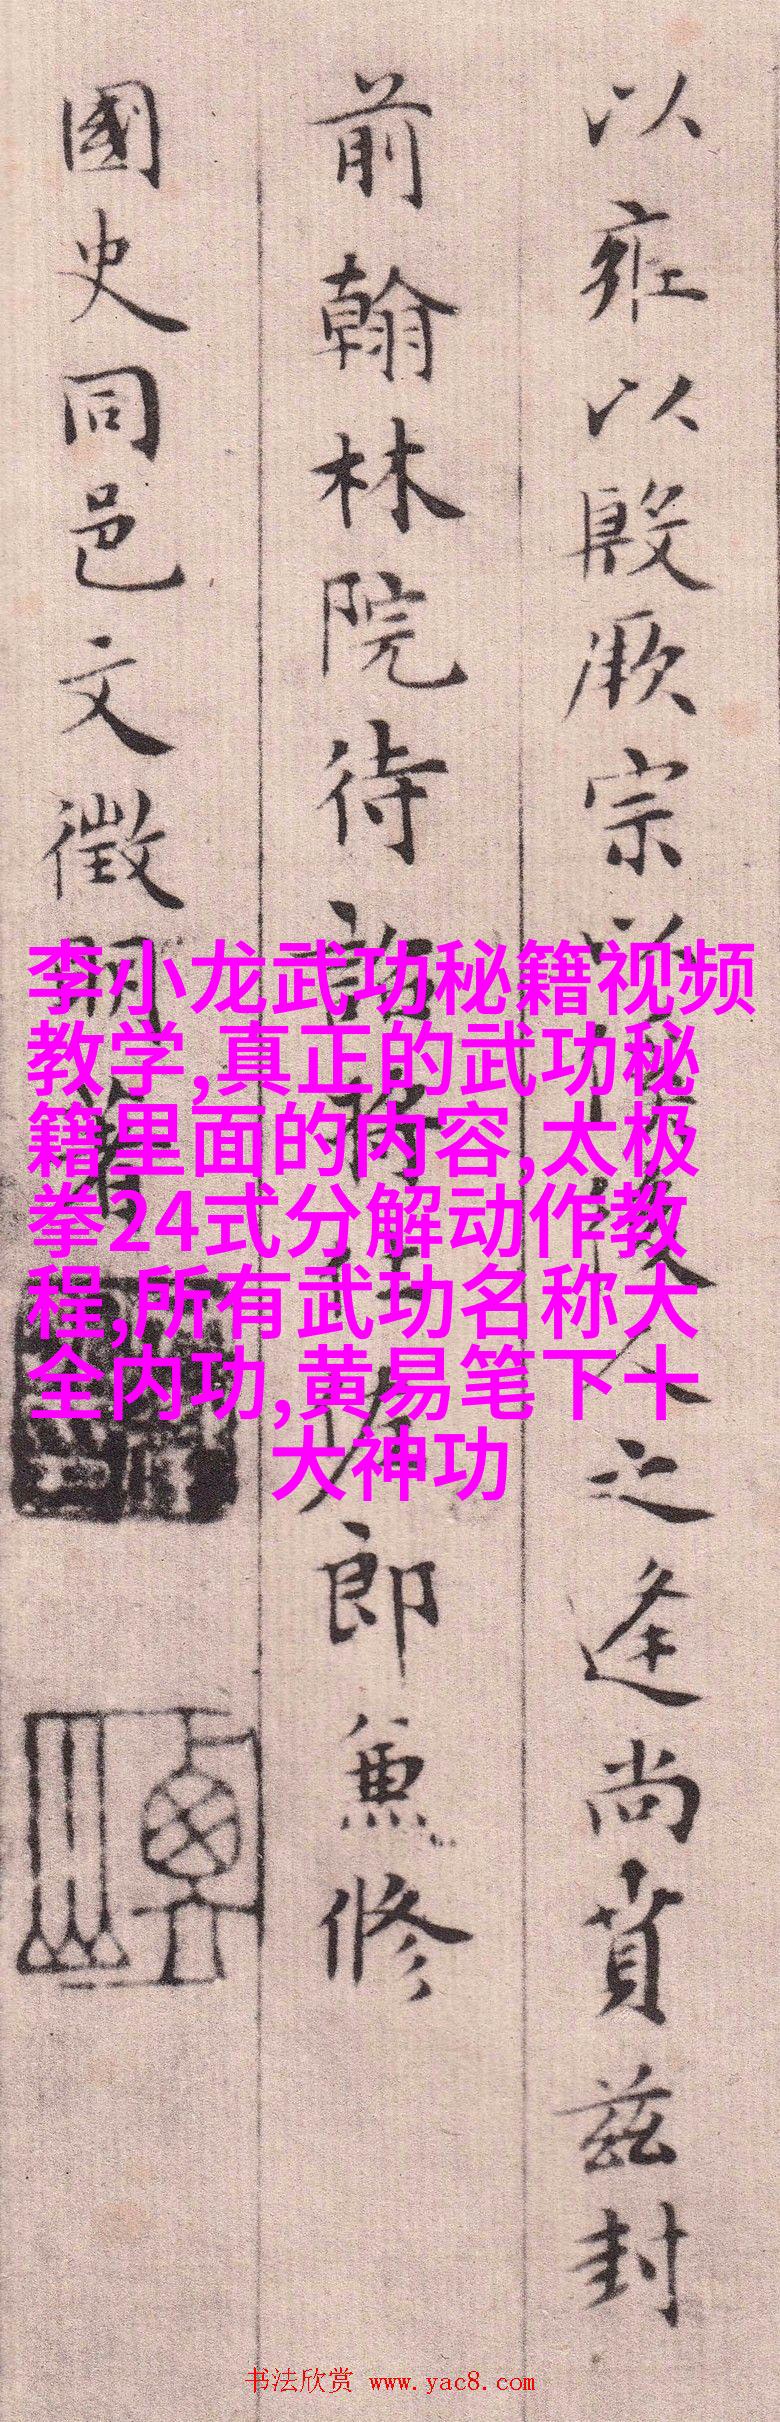 以雍以殷厥宗以
之逢尚賁兹封
前翰林院待詔將仕佐郎兼修
國史同邑文徵明著
李小龙武功秘籍视频
教学,真正的武功秘
籍里面的内容,太极
拳24式分解动作教
程,所有武功名称大
全内功,黄易笔下十
大神功
书法欣赏 www.yac8.com